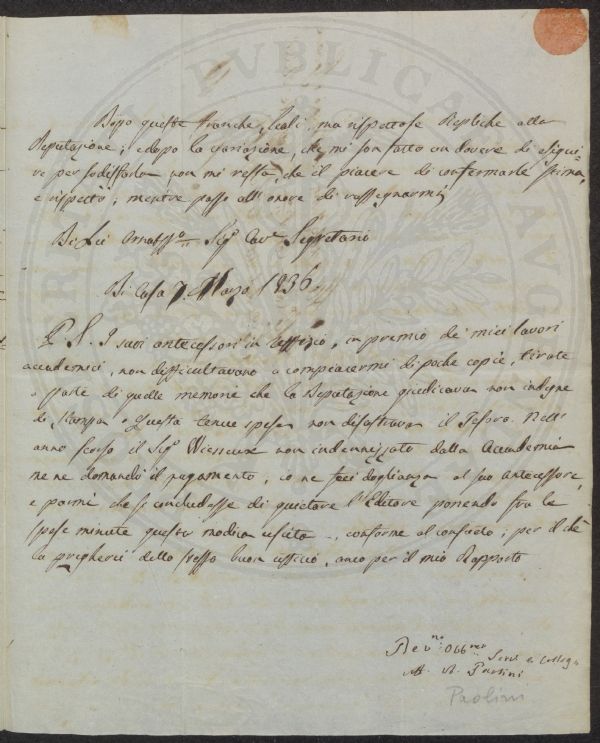 Dopo queste franche, leali, ma rispettose Repliche alla
Deputazione; e dopo la variazione, che mi son fatto un dovere di esegui=
re per sodisfarla non mi resta, che il piacere di confermarle stima,
e rispetto; mentre passo all'onore di rassegnarmi
Di Lei Ornatss.o Sig.r Cav.e Segretario
Di Casa 7. Marzo 1836
P. S. I suoi antecessori in Uffizio, in premio de' miei lavori
accademici, non difficultavano a compiacermi di poche copie, tirate
a parte di quelle memorie che la Deputazione giudicava non indegne
di stampa. Questa tenue spesa non disastrava il Tesoro. Nell'
anno scorso il Sig.r Vieusseux non indennizzato dalla Accademia
me ne domandò il pagamento; io ne feci doglianza al suo antecessore,
e parmi che si concludesse di quietare l'Editore ponendo fra le
spese minute questa modica uscita, conforme al consueto; per il che
la pregherei dello stesso buon ufficio, anco per il mio Rapporto
Dev.mo Obb.mo Serv. e Collega
A. Paolini
Paolini
PUBLICA